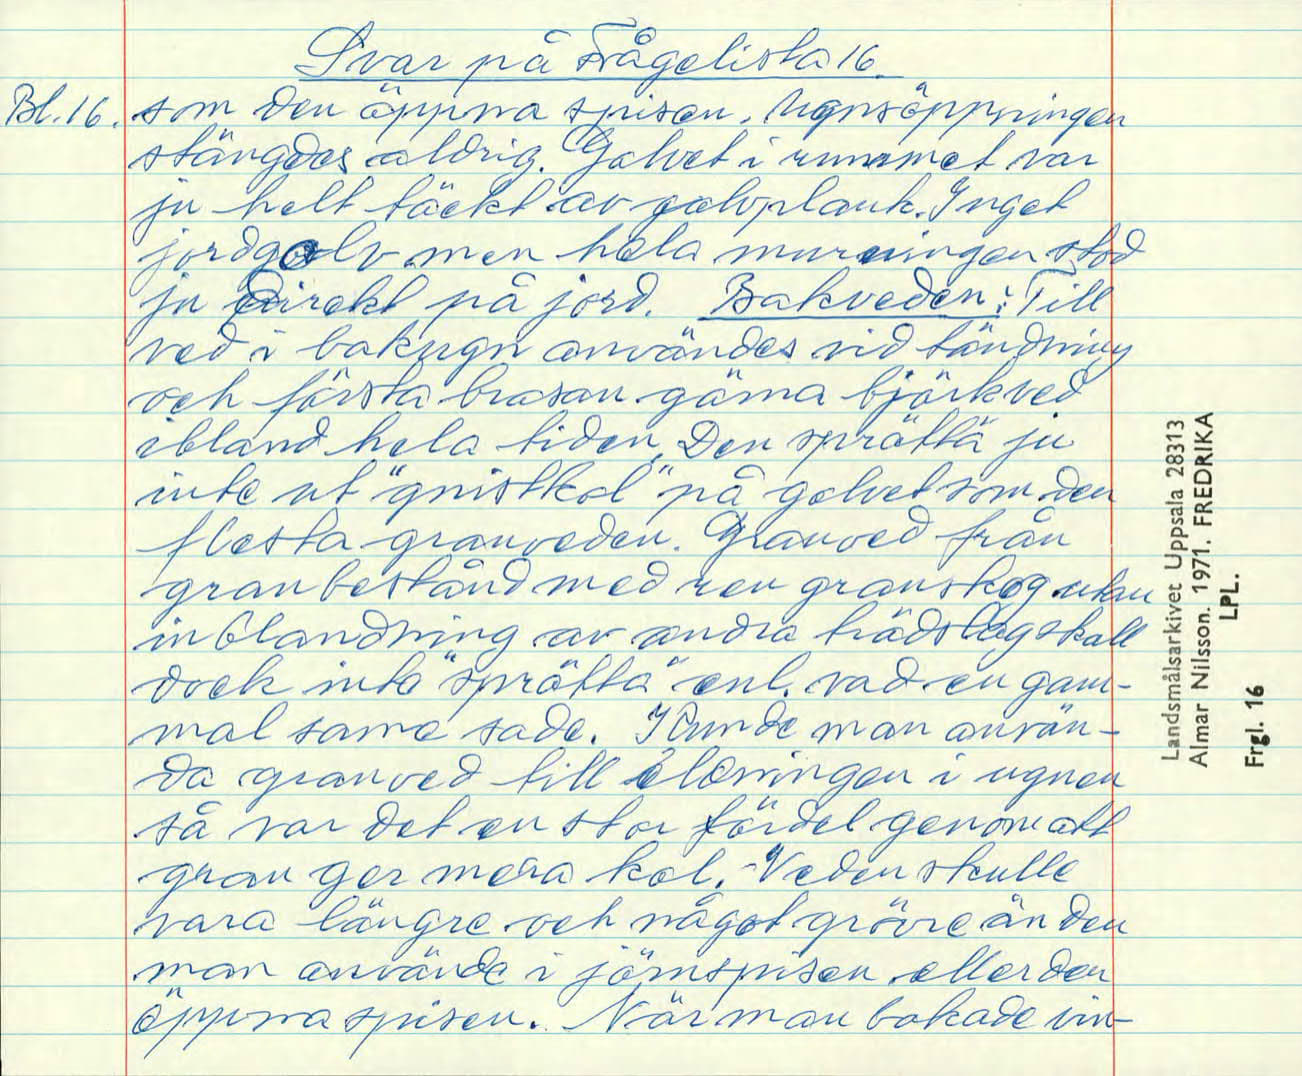 Svar på Frågelista 16.
Bl. 16. som den öppna spisen. Ugnsöppningen
stängdes aldrig. Golvet i rummet var
ju helt täckt av golvplank. Inget
jordgolv men hela murningen stod
ju direkt på jord. Bakveden: Till
ved i bakugn användes vid tändning
och första brasan gärna björkved
ibland hela tiden. Den sprätta ju
inte ut "gnistkol" på golvet som den
flesta granveden. Granved från
granbestånd med ren granskog utan
inblandning av andra trädslag skall
dock inte "sprätta" enl. vad en gam-
mal same sade. Kunde man använ-
da granved till eldningen i ugnen
så var det en stor fördel genom att
gran ger mera kol. Veden skulle
vara längre och något grövre än den
man använde i järnspisen eller den
öppna spisen. När man bakade vin-
Landsmålsarkivet Uppsala 28313
Almar Nilsson. 1971. FREDRIKA
LPL.
Frgl. 16